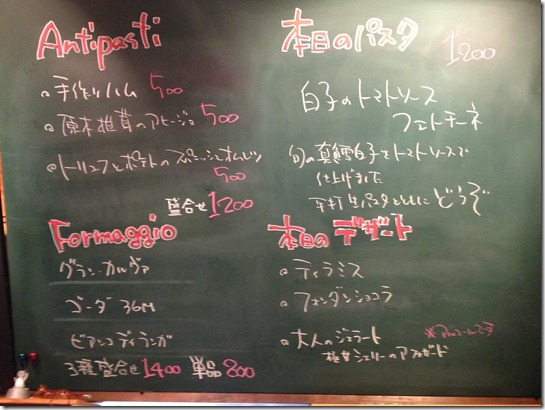 Antipasti
手作りハム 500
原木椎茸のアヒージョ 500
トリュフとポテトのスパニッシュオムレツ
500
盛合せ 1200
Formaggio
グラン・カルヴァ
ゴーダ 36M
ビアンコ ディ ランガ
3種盛合せ 1400 単品 800
本日のパスタ 1200
白子のトマトソース
フェトチーネ
旬の真鱈白子をトマトソースで
仕上げました
平打ち生パスタとともにどうぞ
本日のデザート
ティラミス
フォンダンショコラ
大人のジェラート
極甘シェリーのアフォガード